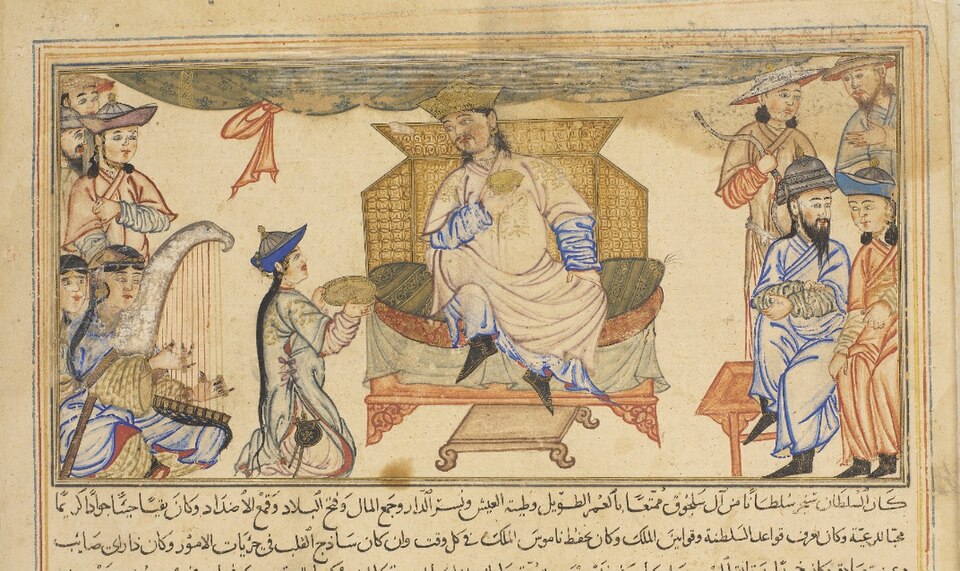 كان السلطان سنجر سلطانا من آل سلجوق ممتعا بالعمر الطويل وطيبة العيش ويسر الدار وجمع المال وفتح البلاد وقمع الاضداد وكان جوادا كريما
محبا للرعية وكان يعرف قواعد السلطنة وقوانين الملك وكان يحفظ ناموس الملك في كل وقت وان كان ساذج القلب في جزيات الامور وكان ذا راى صايب